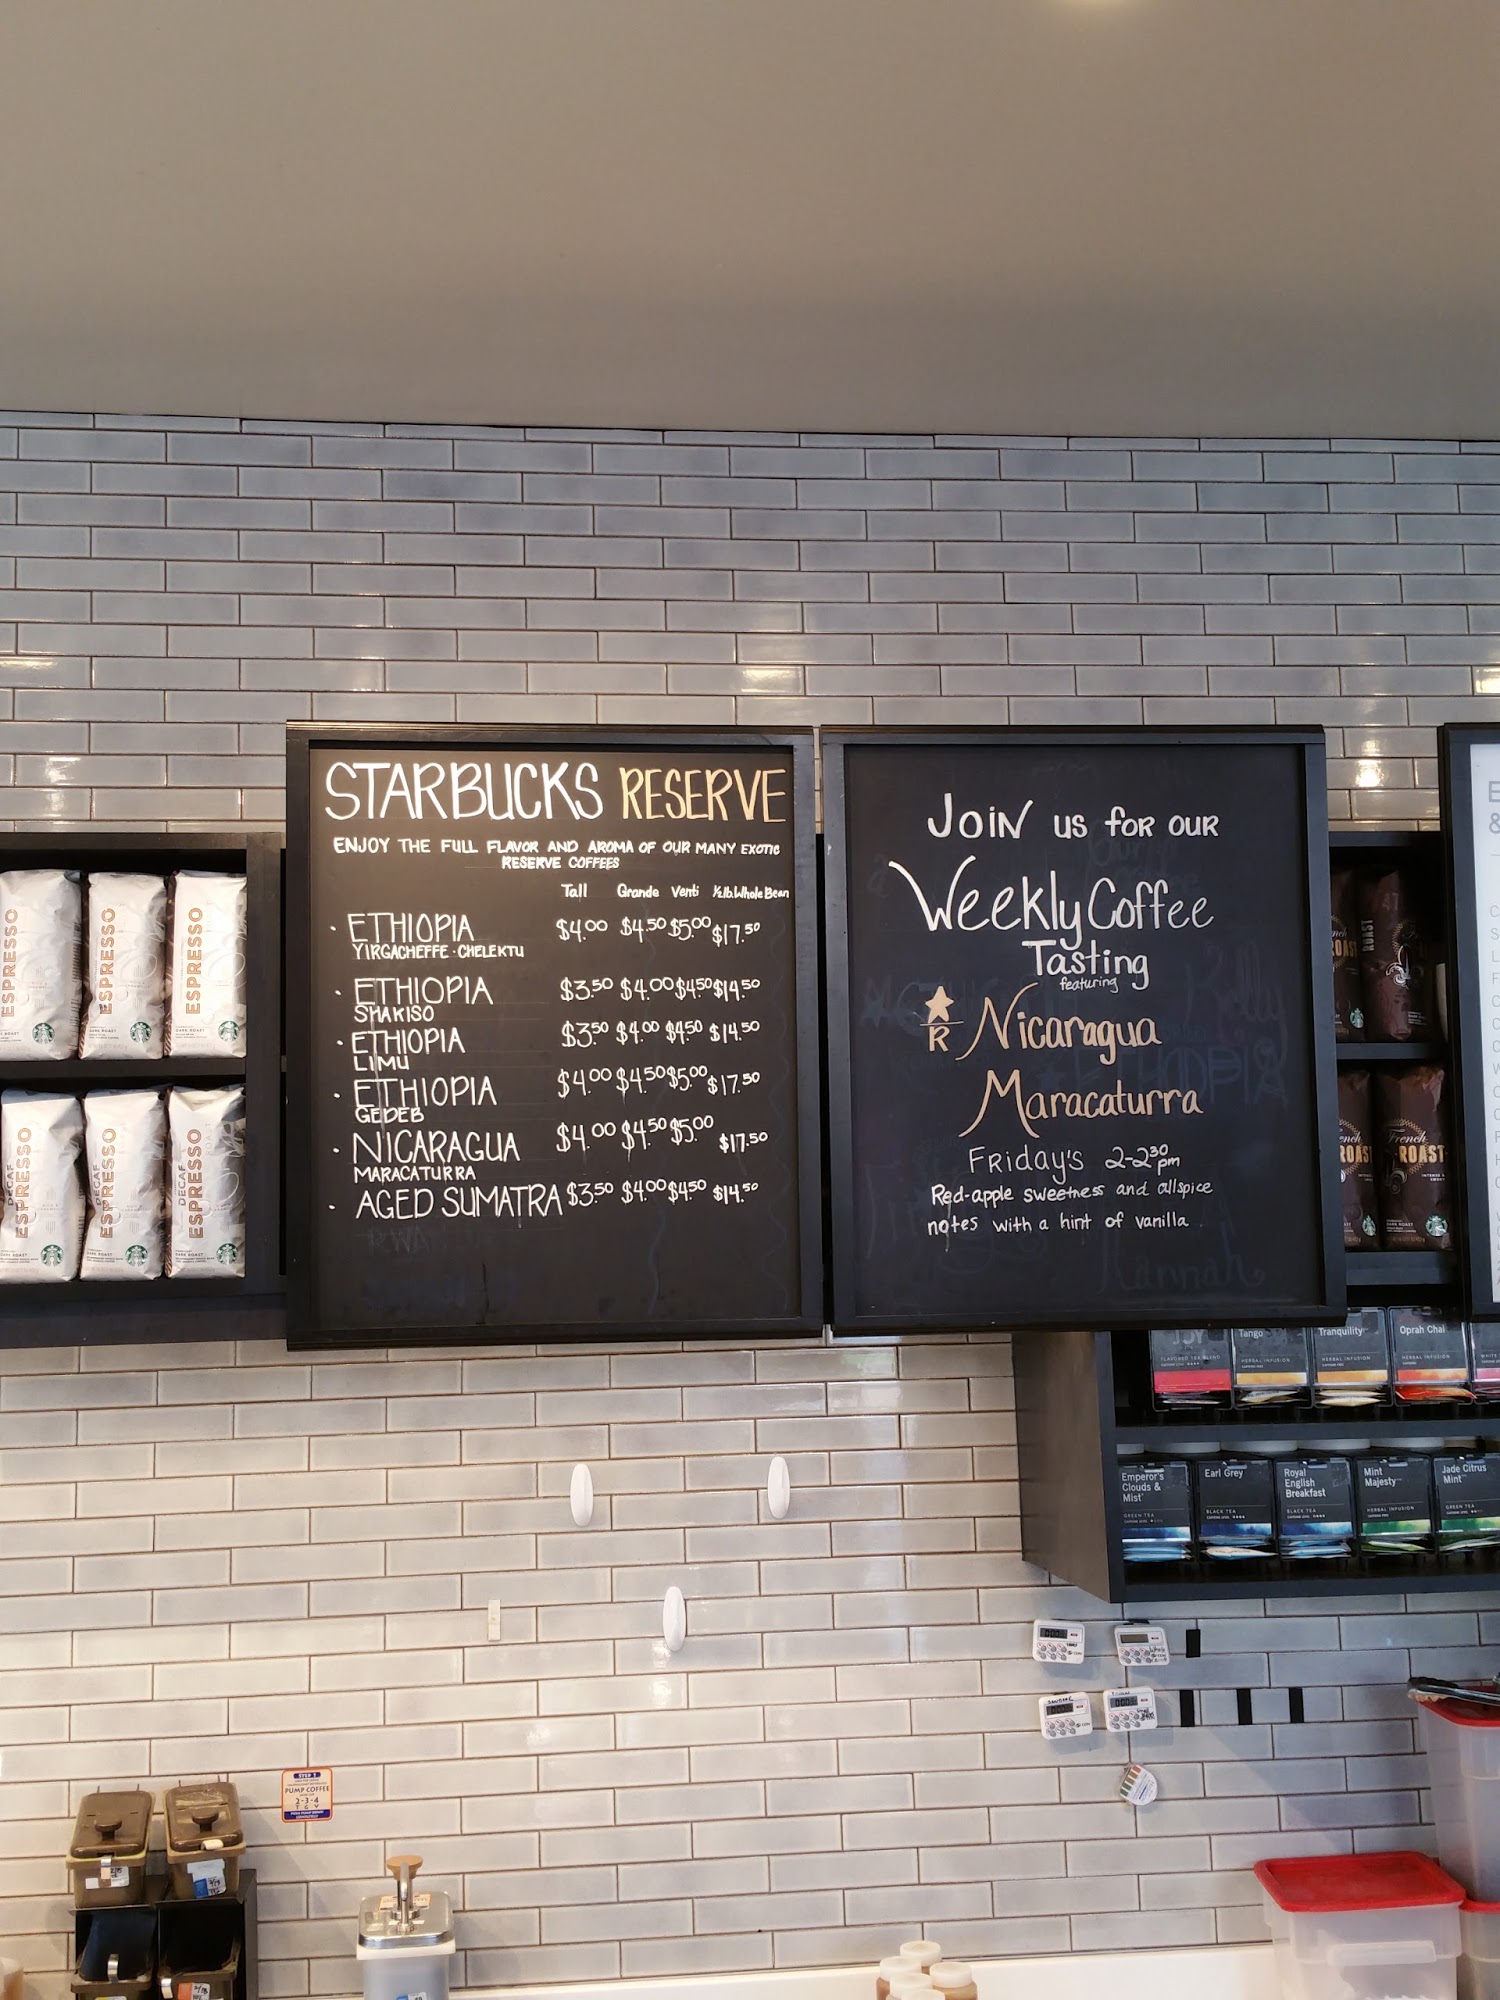 STARBUCKS RESERVE
ENJOY THE FULL FLAVOR AND AROMA OF OUR MANY EXOTIC
RESERVE COFFEES
Tall Grande Venti 1/2lb. Whole Bean
· ETHIOPIA $4.00 $4.50 $5.00 $17.50
YIRGACHEFFE · CHELEKTU
· ETHIOPIA $3.50 $4.00 $4.50 $14.50
SHAKISO
· ETHIOPIA $3.50 $4.00 $4.50 $14.50
LIMU
· ETHIOPIA $4.00 $4.50 $5.00 $17.50
GEDEB
· NICARAGUA $4.00 $4.50 $5.00 $17.50
MARACATURRA
· AGED SUMATRA $3.50 $4.00 $4.50 $14.50
JOIN US FOR OUR
Weekly Coffee
Tasting
featuring
R Nicaragua
Maracaturra
FRiday's 2-230 pm
Red-apple sweetness and allspice
notes with a hint of vanilla
Hannah
ESPRESSO
ESPRESSO
ESPRESSO
DARK ROAST
DARK ROAST
DECAF ESPRESSO
DECAF ESPRESSO
DECAF ESPRESSO
DARK ROAST
DARK ROAST
DARK ROAST
ROAST
French
ROAST
DARK ROAST
JOY
FLAVORED TEA BLEND
Tango
HERBAL INFUSION
Tranquility
HERBAL INFUSION
Oprah Chai
HERBAL INFUSION
Emperor's
Clouds &
Mist
GREEN TEA
Earl Grey
BLACK TEA
Royal
English
Breakfast
BLACK TEA
Mint
Majesty
HERBAL INFUSION
Jade Citrus
Mint
GREEN TEA
STEP 1
PUMP COFFEE
2-3-4
T G V